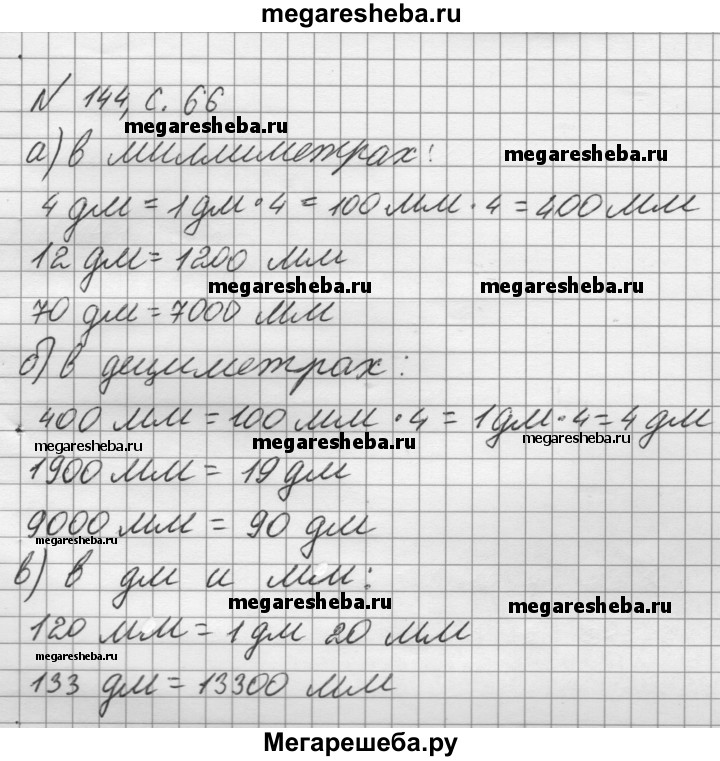 megaresheba.ru
N 144, с. 66
megaresheba.ru
а) в миллиметрах:
megaresheba.ru
4 дм = 1 дм · 4 = 100 мм · 4 = 400 мм
12 дм = 1200 мм
megaresheba.ru megaresheba.ru
70 дм = 7000 мм
б) в дециметрах:
400 мм = 100 мм · 4 = 1 дм · 4 = 4 дм
megaresheba.ru megaresheba.ru megaresheba.ru
1900 мм = 19 дм
9000 мм = 90 дм
megaresheba.ru
в) в дм и мм:
megaresheba.ru megaresheba.ru
120 мм = 1 дм 20 мм
megaresheba.ru
133 дм = 13300 мм
Мегарешеба.ру